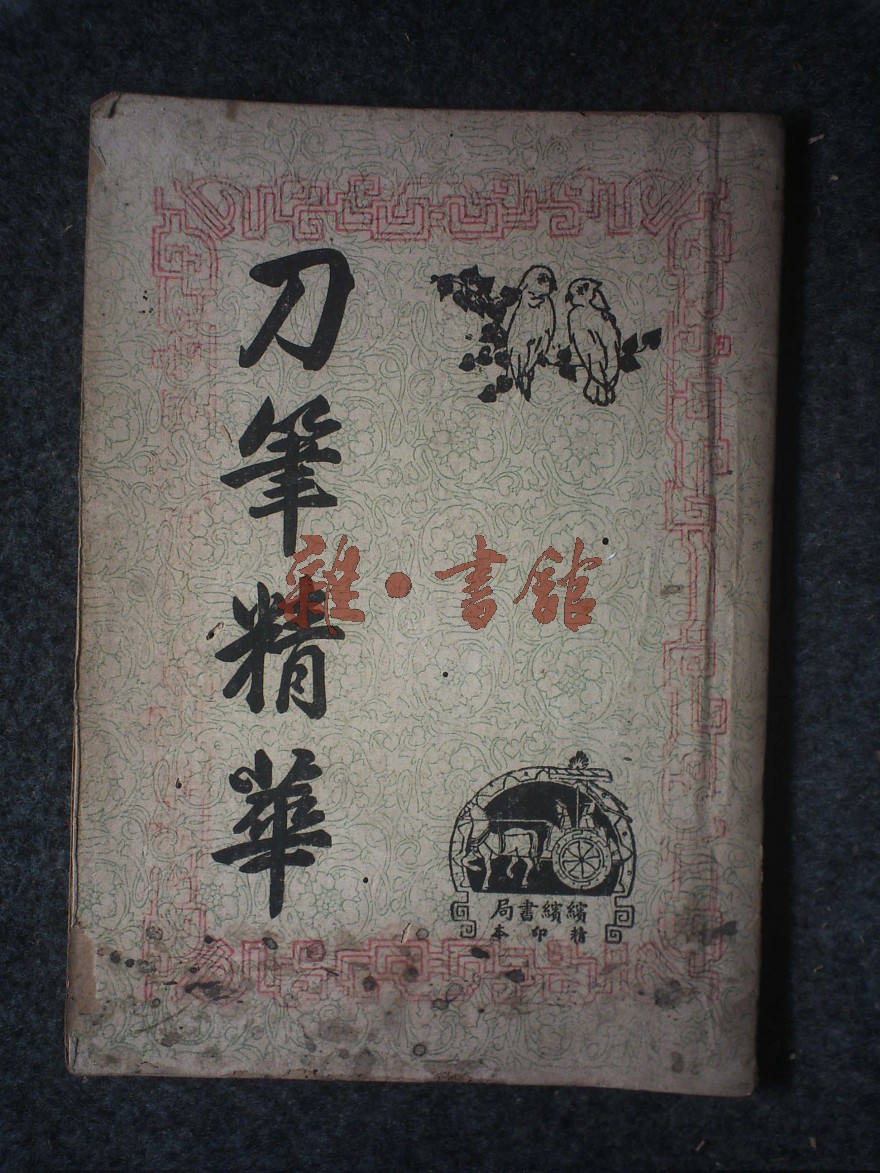 刀筆精華
雜·書館
繽繽書局
精印本